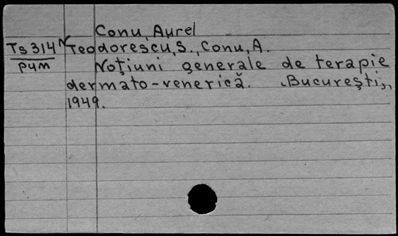 Conu, Aurel
Ts 314 Teodorescu, S., Conu, A.
pym Noțiuni generale de terapie
dermato-venerică. București,
1949.